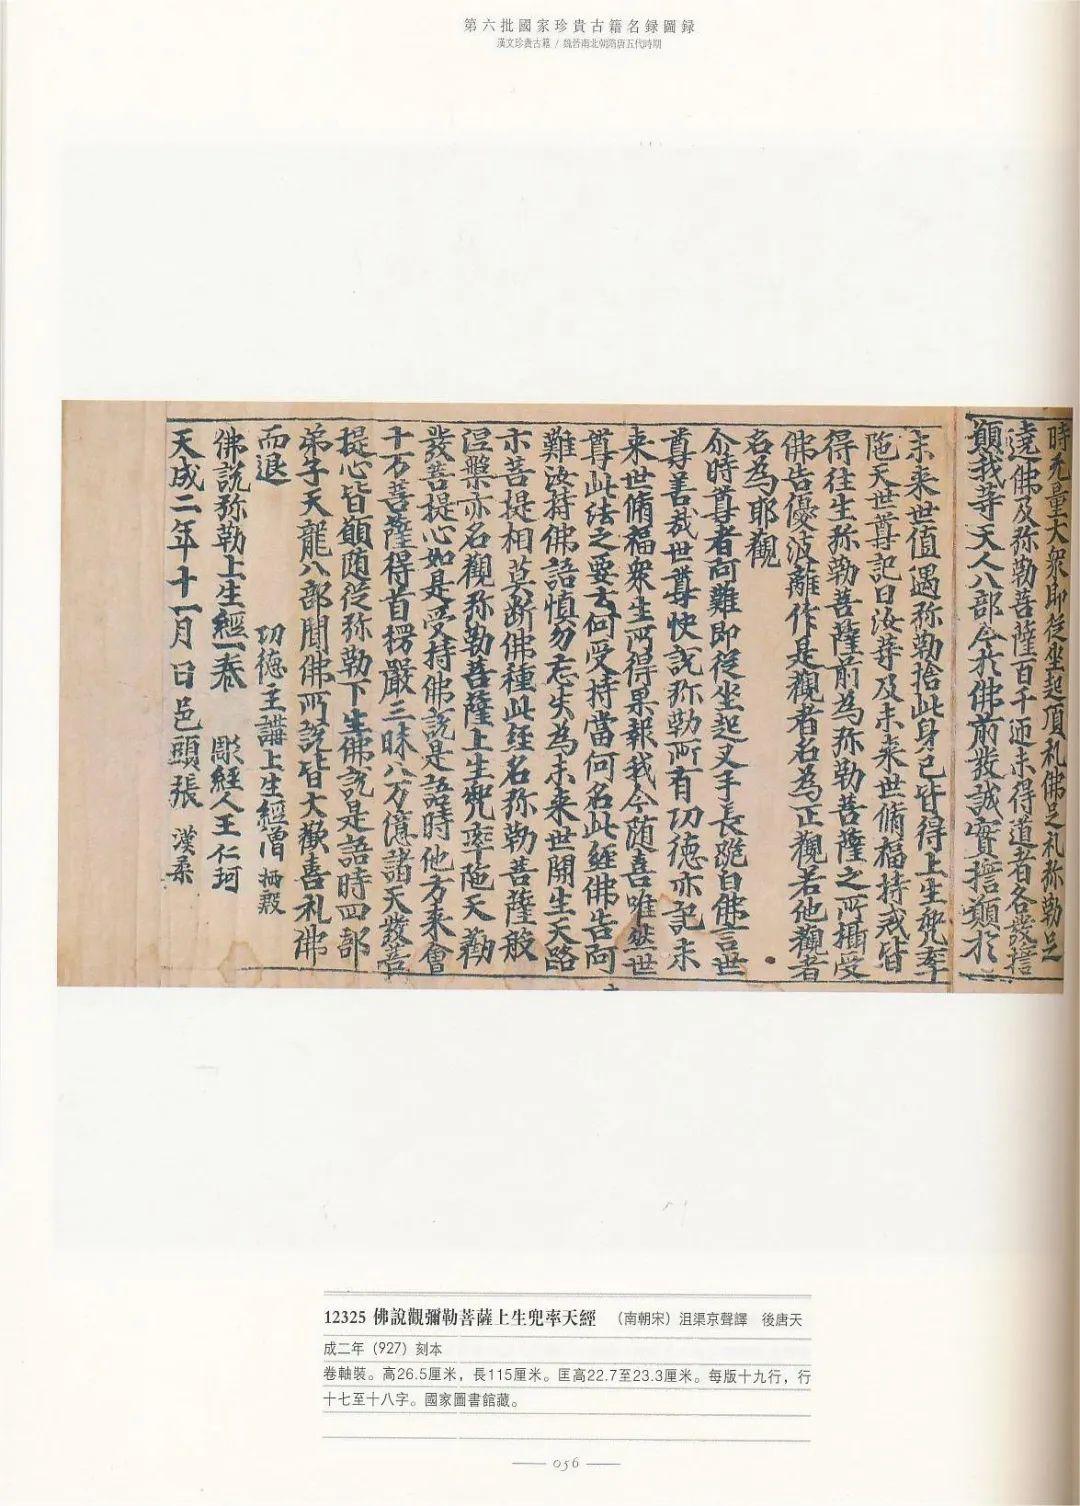 第六批國家珍貴古籍名録圖録
漢文珍貴古籍 / 魏晉南北朝隋唐五代時期
時无量大衆即從坐起頂礼佛足礼弥勒足
遶佛及弥勒菩薩百千迊未得道者各發擔
願我等天人八部今於佛前發誠實擔願於
未来世值遇弥勒捨此身已皆得上生兜率
陁天世尊記曰汝等及未来世脩福持戒皆
得往生弥勒菩薩前為弥勒菩薩之所攝受
佛告優波離作是觀者名為正觀若他觀者
名為耶觀
尒時尊者阿難即從坐起叉手長跪白佛言世
尊善哉世尊快說弥勒所有功德亦記未
来世脩福衆生所得果報我今随喜唯然世
尊此法之要云何受持當何名此經佛告阿
難汝持佛語慎勿忘失為未来世開生天路
示菩提相莫断佛種此經名弥勒菩薩般
涅槃亦名觀弥勒菩薩上生兜率陁天勸
發菩提心如是受持佛說是語時他方来會
十万菩薩得首楞嚴三昧八万億諸天發菩
提心皆願随從弥勒下生佛說是語時四部
弟子天龍八部聞佛所說皆大歡喜礼佛
而退 功德主講上生經僧栖殷
佛說弥勒上生經一卷 彫經人王仁珂
天成二年十一月日邑頭張漢柔
12325 佛說觀彌勒菩薩上生兜率天經 （南朝宋）沮渠京聲譯 後唐天
成二年（927）刻本
卷軸裝。高26.5厘米，長115厘米。匡高22.7至23.3厘米。每版十九行，行
十七至十八字。國家圖書館藏。
056